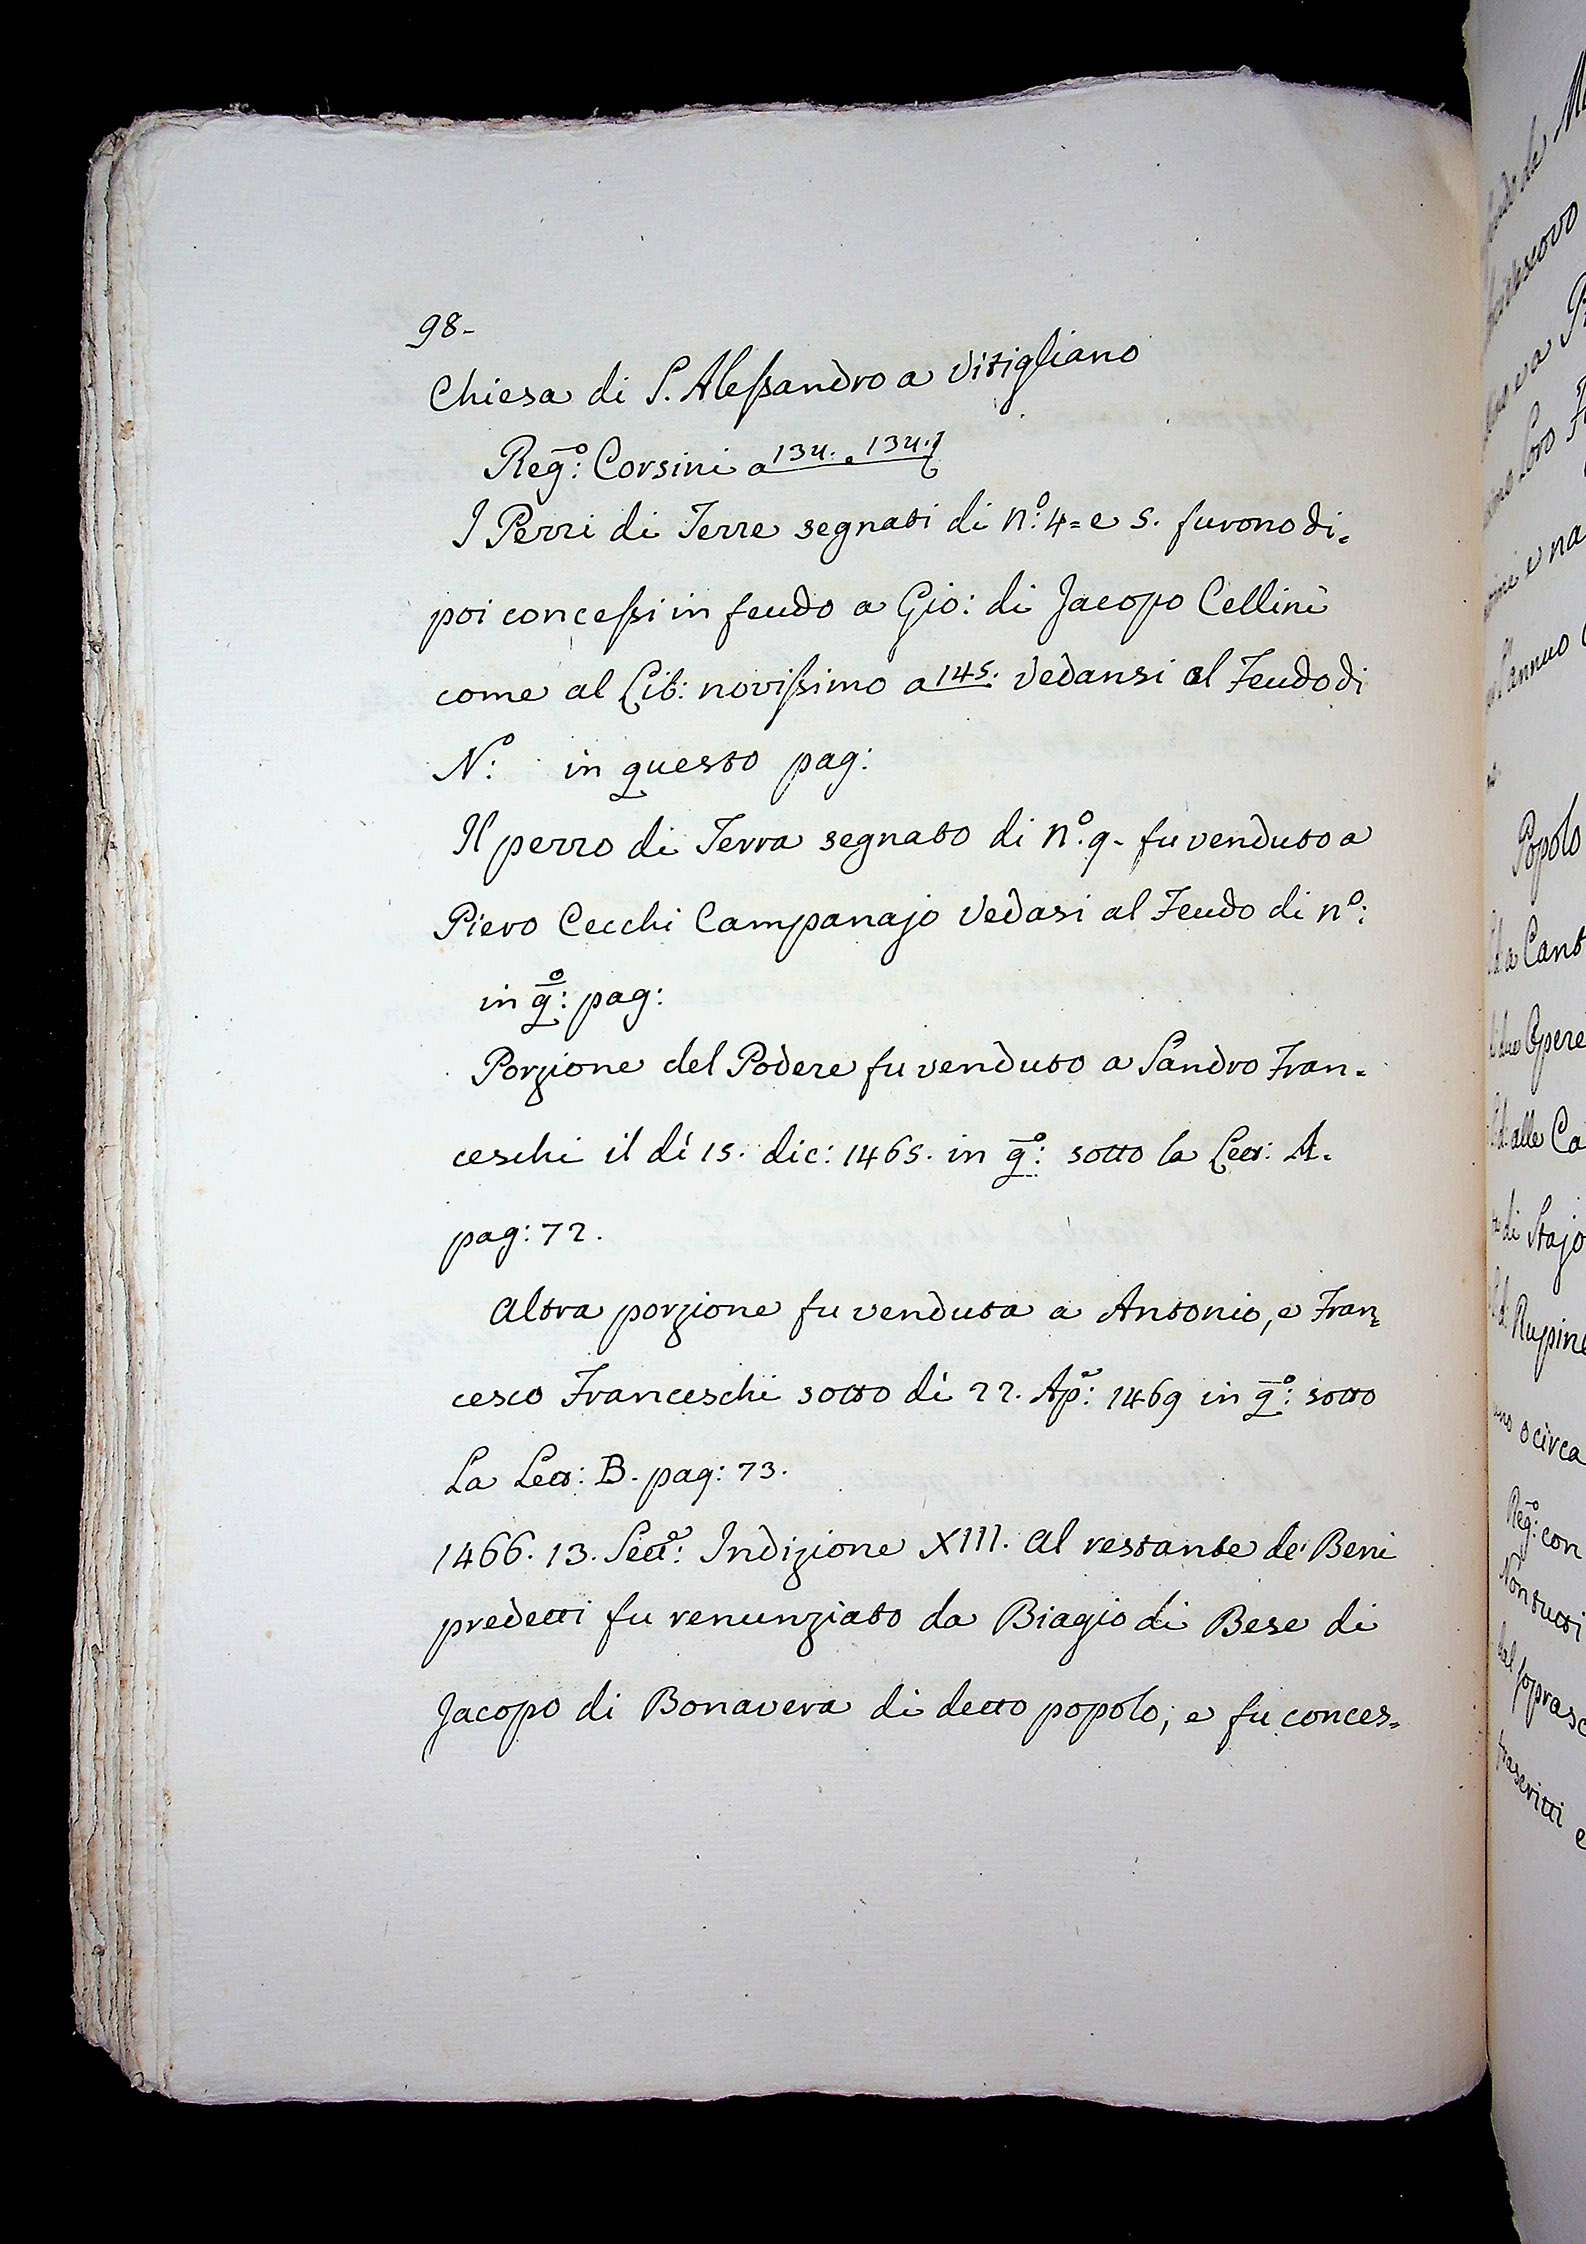 98-
Chiesa di S. Alessandro a Vitigliano
Reg:º Corsini a 134. e 134.
I Pezzi di Terre segnati di n:º 4= e 5. furono di=
poi concessi in feudo a Gio: di Jacopo Cellini
come al Lib: novissimo a 145. Vedansi al Feudo di
N:º in questo pag:
Il pezzo di Terra segnato di n:º 9. fu venduto a
Piero Cecchi Campanajo Vedasi al Feudo di nº:
in q:º pag:
Porzione del Podere fu venduto a Sandro Fran=
ceschi il dì 15. dic: 1465. in q:º sotto la Lett: A.
pag: 72.
Altra porzione fu venduta a Antonio, e Fran=
cesco Franceschi sotto dì 22. Ap:e 1469 in q:º sotto
La Lett: B. pag: 73.
1466. 13. Sett:e Indizione XIII. Al restante de' Beni
predetti fu renunziato da Biagio di Bese di
Jacopo di Bonavera di detto popolo; e fu conces=
Popolo
a Cant
Opere
alle Ca
di Stajo
Rupine
o circa
Reg:º con
Non tutti